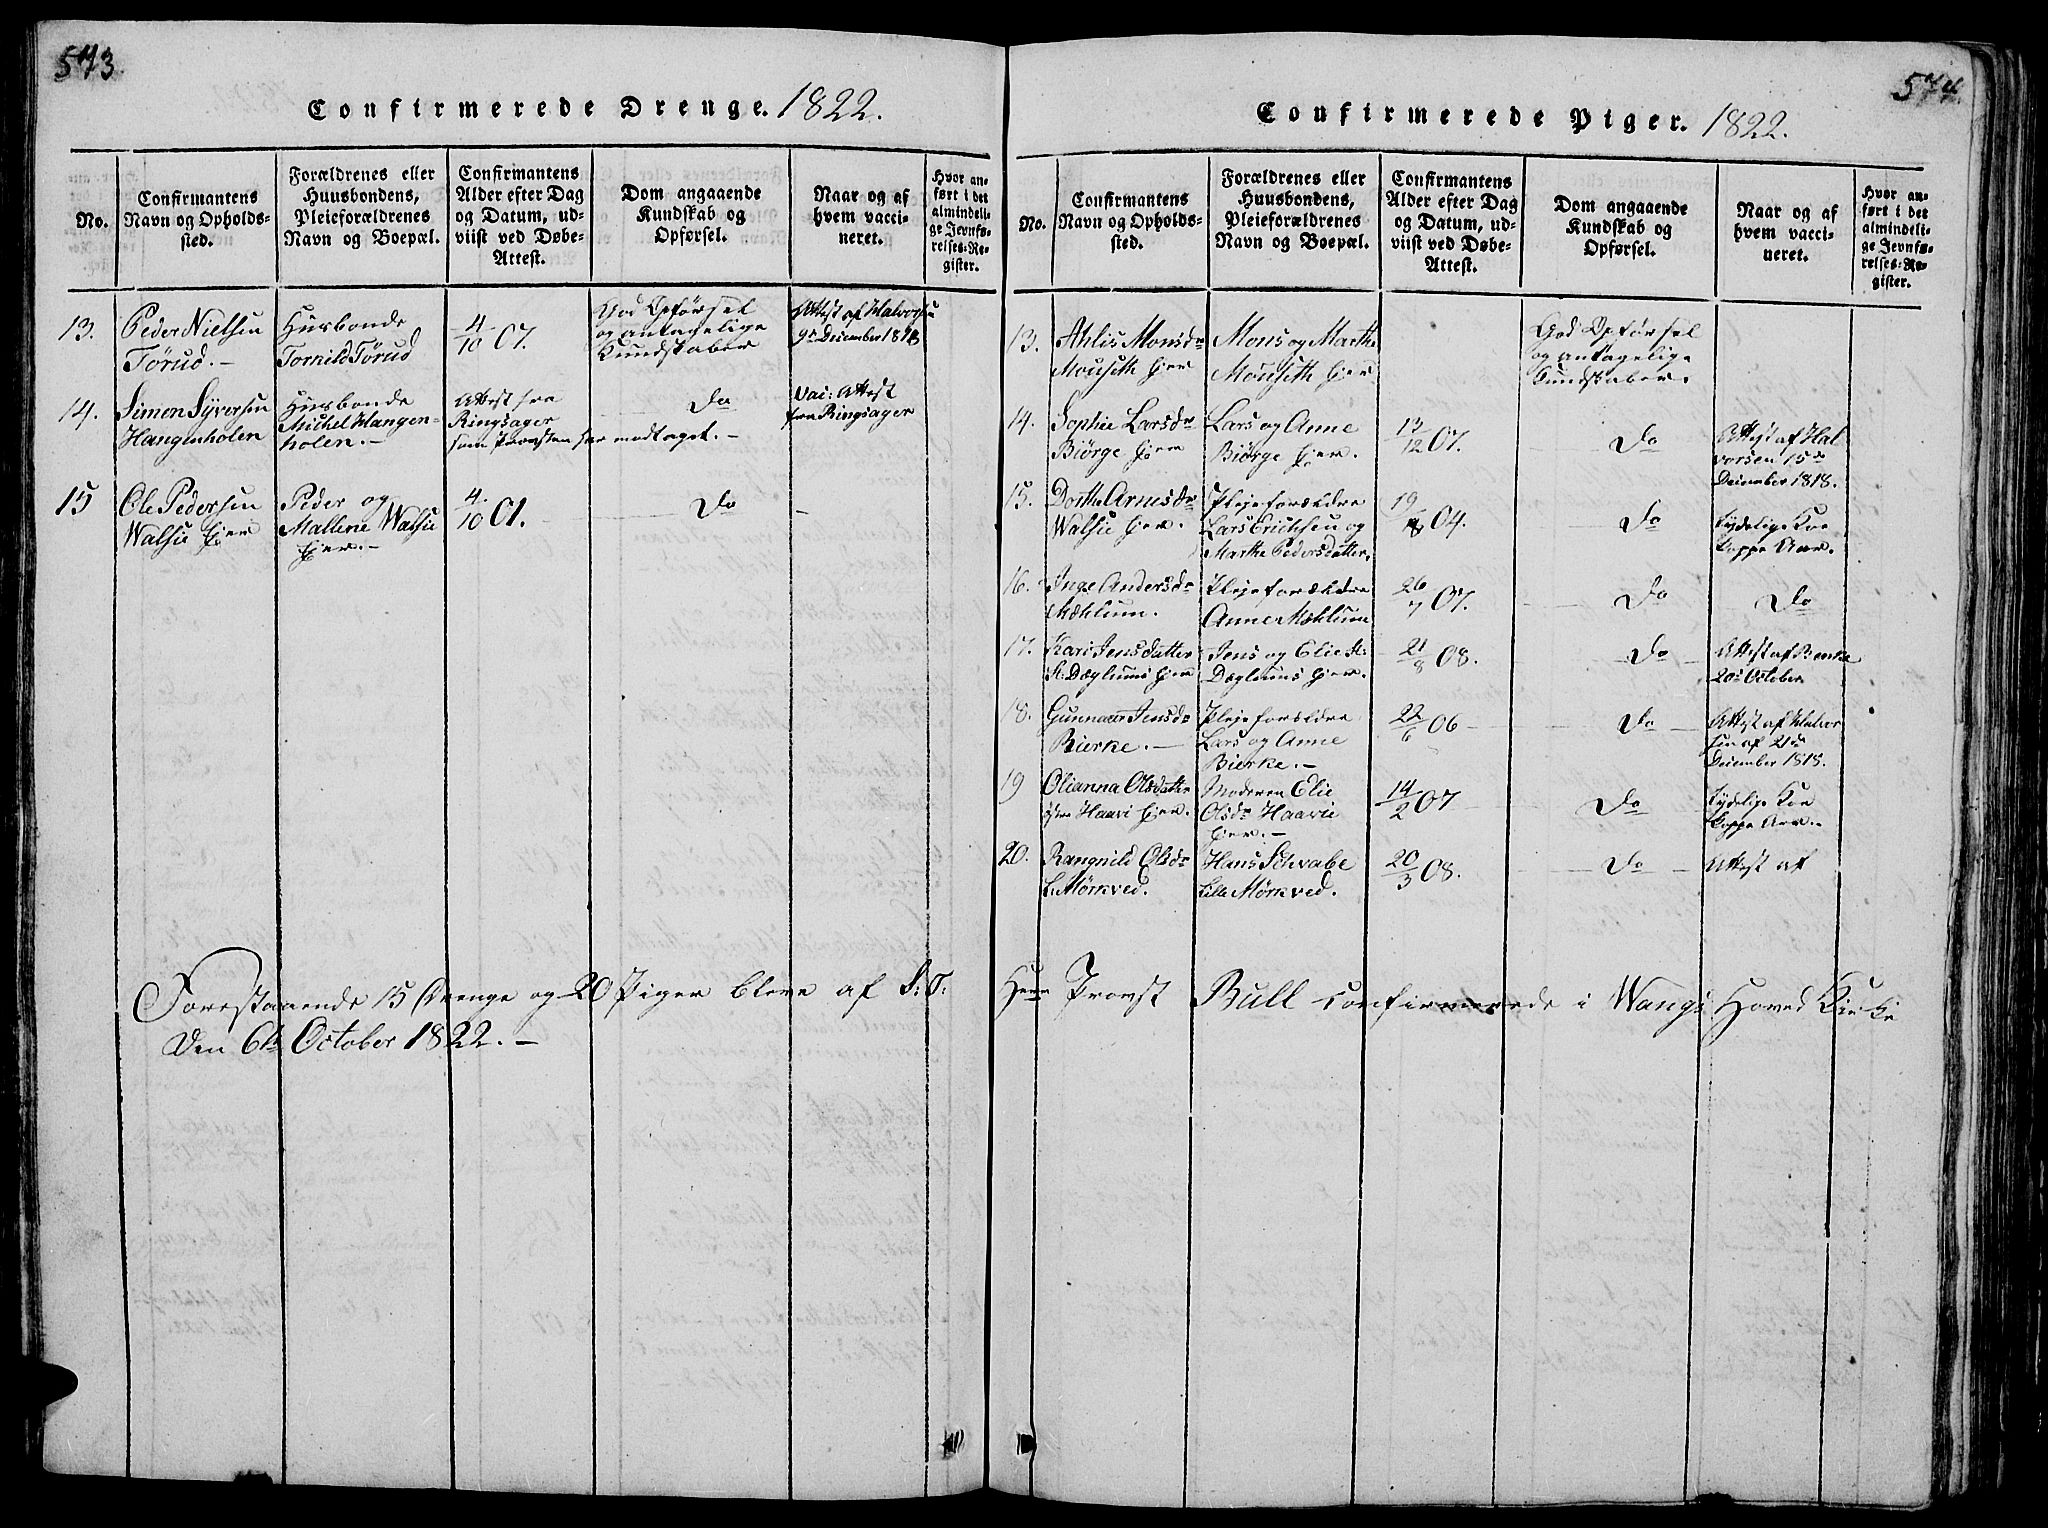 573.
Confirmerede Drenge. 1822.
No.
Confirmantens
Navn og Opholds-
sted.
Forældrenes eller
Huusbondens,
Pleieforældrenes
Navn og Boepæl.
Confirmantens
Alder efter Dag
og Datum, ud-
viist ved Døbe-
Attest.
Dom angaaende
Kundskab og
Opførsel.
Naar og af
hvem vacci-
neret.
Hvor an-
ført i det
almindeli-
ge Jevnfø-
relses-Re-
gister.
13.
Peder Nielsen
Törud. -
Husbonde
Tornild Törud
4/10 07.
God Opförsel
og antagelige
Kundskaber
Attest af Halvorsen
9de December 1818
14.
Simon Syversen
Hangenholen
Husbonde
Michel Hangen-
holen. -
Attest fra
Ringsager
som Provsten har modtaget. -
Do
Vac: Attest
fra Ringsager
15
Ole Pedersen
Walsie Eier
Peder og
Mallene Walsie
Eier. -
4/10 01.
Do
574.
Confirmerede Piger. 1822.
No.
Confirmantens
Navn og Opholds-
sted.
Forældrenes eller
Huusbondens,
Pleieforældrenes
Navn og Boepæl.
Confirmantens
Alder efter Dag
og Datum, ud-
viist ved Døbe-
Attest.
Dom angaaende
Kundskab og
Opførsel.
Naar og af
hvem vacci-
neret.
Hvor an-
ført i det
almindeli-
ge Jevnfø-
relses-Re-
gister.
13.
Ahlis Monsdr
Mouseth Eier
Mons og Marthe
Mouseth Eier
God Opförsel
og antagelige
Kundskaber.
14.
Sophie Larsdr
Biörge Eier
Lars og Anne
Biörge Eier.
13/12 07.
Do
Attest af Hal
vorsen 15de
December 1818.
15.
Dorthe Arnesdr
Walsie Eier.
Plejeforældre
Lars Erichsen og
Marthe Pedersdatter.
19/8 04.
Do
tydelige Koe
koppe Aar.
16.
Inge Andersdr
Mæhlum.
Plejeforældre
Anne Mæhlum
26/7 07.
Do
Do
17.
Kari Jensdatter
St: Dæglums Eier
Jens og Elie St:
Dæglums Eier.
21/8 08.
Do
Attest af Bierke
20de October
18.
Gunnaur Jensdr
Bierke. -
Plejeforældre
Lars og Anne
Bierke. -
22/6 06 -
Do
Attest af Halvor
sen af 21de
December 1818.
19
Olianna Olsdatter
östre Haavi Eier.
Moderen Elie
Olsdr Haavie
Eier. -
14/2 07
Do
tydelige Koe
koppe Aar. -
20.
Rangnild Olsdr
L: Mörkved.
Hans Schvabe
Lille Mörkved.
20/3 08.
Do
Attest af
Forestaaende 15 Drenge og 20 Piger bleve af S: T: Herr Provst Bull confirmerede i Wangs Hoved Kirke
Den 6te October 1822. -